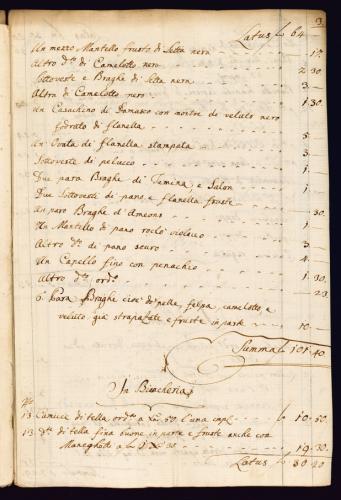 3
Latus f 64 —
Un mezzo Mantello frusto di Setta nera 17.
Altro d.º di Camelotto nero 2. 30
Sottoveste e Braghe di Setta nera 3. —
Altra di Camelotto nero 1. 30
Un Casachino di Damasco con mostre di veluto nero
fodrato di flanella 5 —
Un Ovata di flanella stampata 3. —
Sottoveste di pelucco 1. —
Due para Braghe di Tamina, e Salon 1. —
Due Sottoveste di pano, e flanella fruste
Un paro Braghe d'Ancons 30.
Un Mantello di pano roclò violaceo 1. —
Altro d.º di pano scuro 3. —
Un Capello fino con penachio 4. —
Altro d.º ord.º 1. 30.
6. Para Braghe cioè di pelle, felpa, camelotto, e
veluto già strapazate e fruste in parte 10 —
Summa f 101. 40
In Biancheria
13. Camicie di tella ord.ª a 50. l'una f 10. 50.
13. d.º di tella fina buone in parte e fruste anche con
Maneghotti a f 1. 30. 19. 30.
Latus f 30. 20